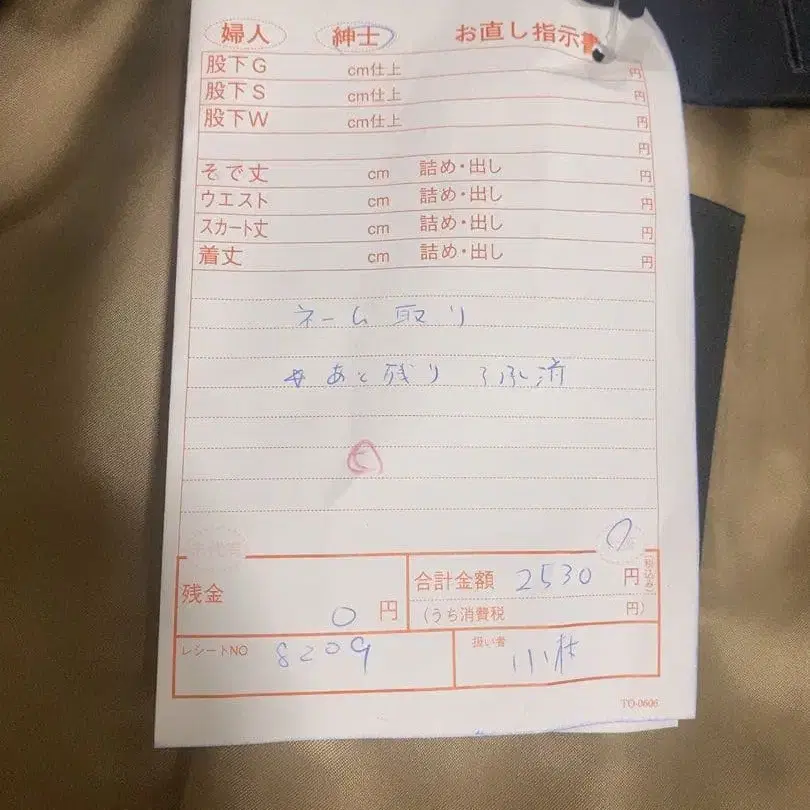 婦人 紳士 お直し指示書
股下G cm仕上 円
股下S cm仕上 円
股下W cm仕上 円
円
そで丈 cm 詰め・出し 円
ウエスト cm 詰め・出し 円
スカート丈 cm 詰め・出し 円
着丈 cm 詰め・出し 円
ネーム取り
あと残り 済
残金 0円
合計金額 2530円(税込み)
(うち消費税 円)
レシートNO 8209
扱い者
TO-0606